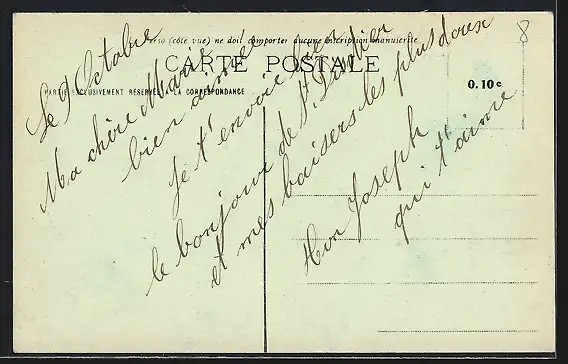 Le verso (côté vue) ne doit comporter aucune inscription manuscrite
CARTE POSTALE
PARTIE EXCLUSIVEMENT RÉSERVÉE A LA CORRESPONDANCE
0.10 c
8
Le 9 Octobre
Ma chère Marie
bien aimée
Je t'envoie bien
le bonjour de St.
et mes baisers les plus doux
Ton Joseph
qui t'aime